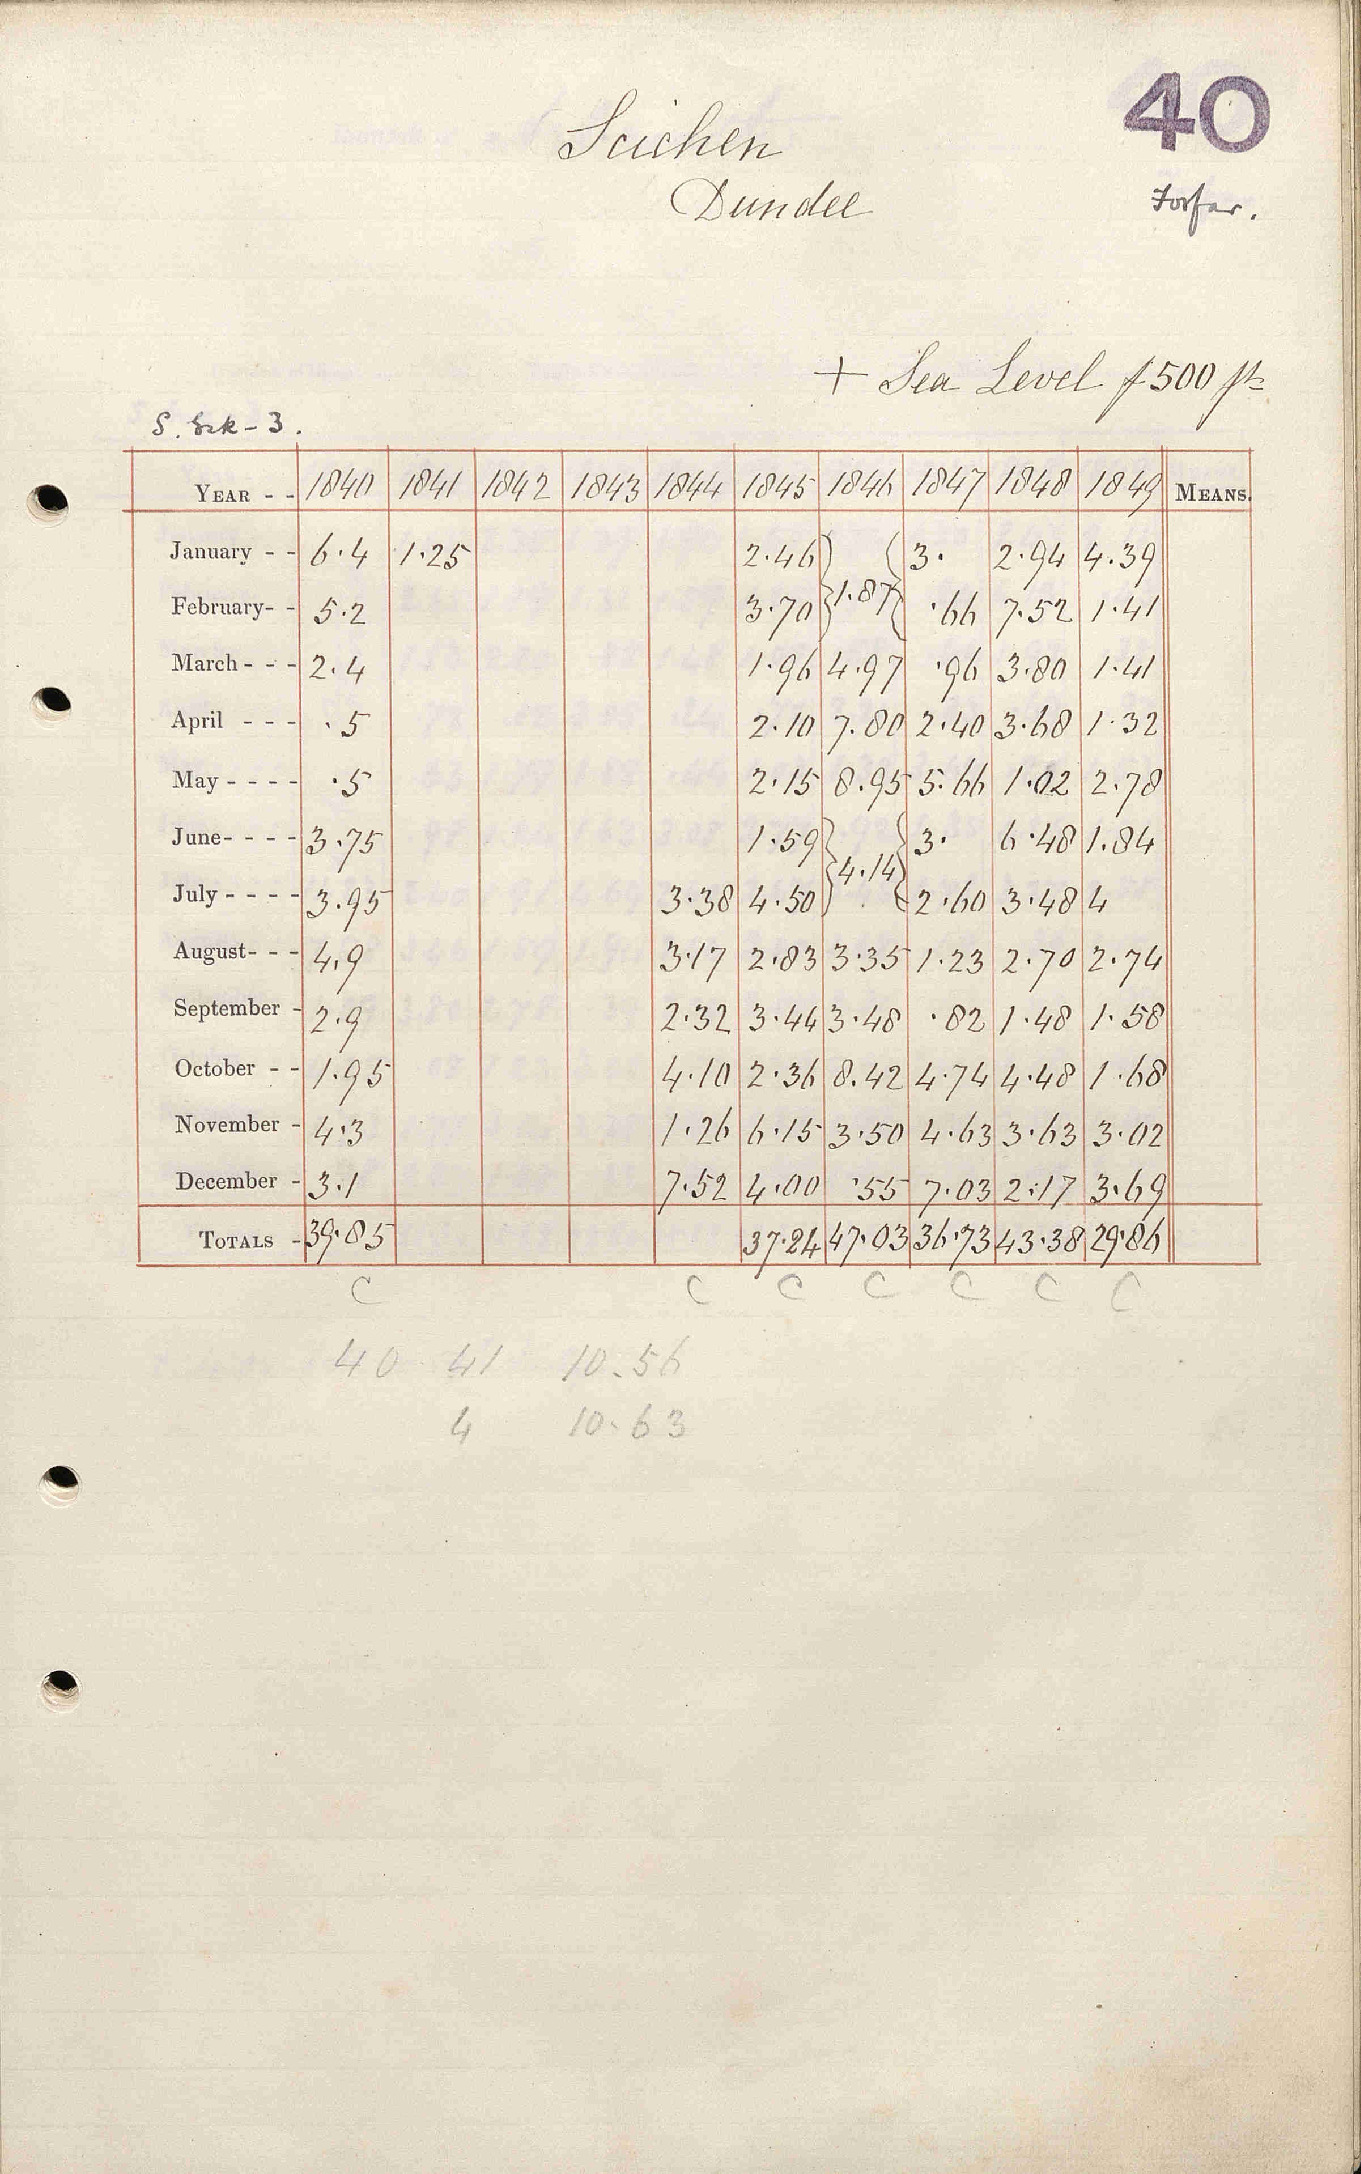 40
Forfar.
Scichen
Dundee
+ Sea Level f 500 ft
S. Bk - 3.
YEAR - - 1840 1841 1842 1843 1844 1845 1846 1847 1848 1849 MEANS.
January - - 6.4 1.25 2.46 3. 2.94 4.39
1.87
February - - 5.2 3.70 .66 7.52 1.41
March - - - 2.4 1.96 4.97 .96 3.80 1.41
April - - - .5 2.10 7.80 2.40 3.68 1.32
May - - - - .5 2.15 8.95 5.66 1.02 2.78
June - - - - 3.75 1.59 3. 6.48 1.84
4.14
July - - - - 3.95 3.38 4.50 2.60 3.48 4
August - - - 4.9 3.17 2.83 3.35 1.23 2.70 2.74
September - 2.9 2.32 3.44 3.48 .82 1.48 1.58
October - - 1.95 4.10 2.36 8.42 4.74 4.48 1.68
November - 4.3 1.26 6.15 3.50 4.63 3.63 3.02
December - 3.1 7.52 4.00 .55 7.03 2.17 3.69
TOTALS - 39.85 37.24 47.03 36.73 43.38 29.86
C C C C C C C
40 41 10.56
4 10.63